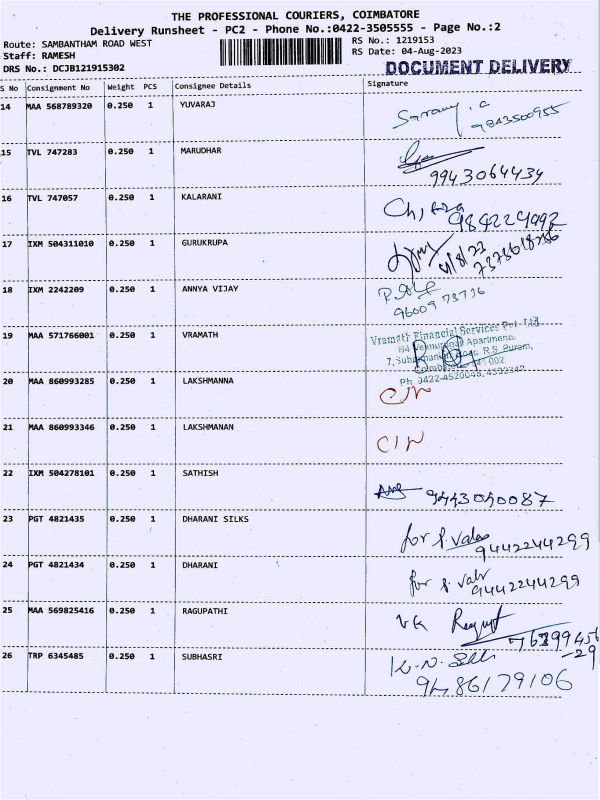 THE PROFESSIONAL COURIERS, COIMBATORE
Delivery Runsheet - PC2 - Phone No.:0422-3505555 - Page No.:2
Route: SAMBANTHAM ROAD WEST RS No.: 1219153
Staff: RAMESH RS Date: 04-Aug-2023
DRS No.: DCJB121915302 DOCUMENT DELIVERY
S No Consignment No Weight PCS Consignee Details Signature
14 MAA 568789320 0.250 1 YUVARAJ
9843500955
15 TVL 747283 0.250 1 MARUDHAR
9943064434
16 TVL 747057 0.250 1 KALARANI
17 IXM 504311010 0.250 1 GURUKRUPA
18 IXM 2242209 0.250 1 ANNYA VIJAY
9600973736
19 MAA 571766001 0.250 1 VRAMATH
Vramath Financial Services Pvt Ltd
Apartments
R.S. Puram,
20 MAA 860993285 0.250 1 LAKSHMANNA
21 MAA 860993346 0.250 1 LAKSHMANAN
22 IXM 504278101 0.250 1 SATHISH
9443040087
23 PGT 4821435 0.250 1 DHARANI SILKS
for
9442244299
24 PGT 4821434 0.250 1 DHARANI
for
9442244299
25 MAA 569825416 0.250 1 RAGUPATHI
26 TRP 6345485 0.250 1 SUBHASRI
9486179106